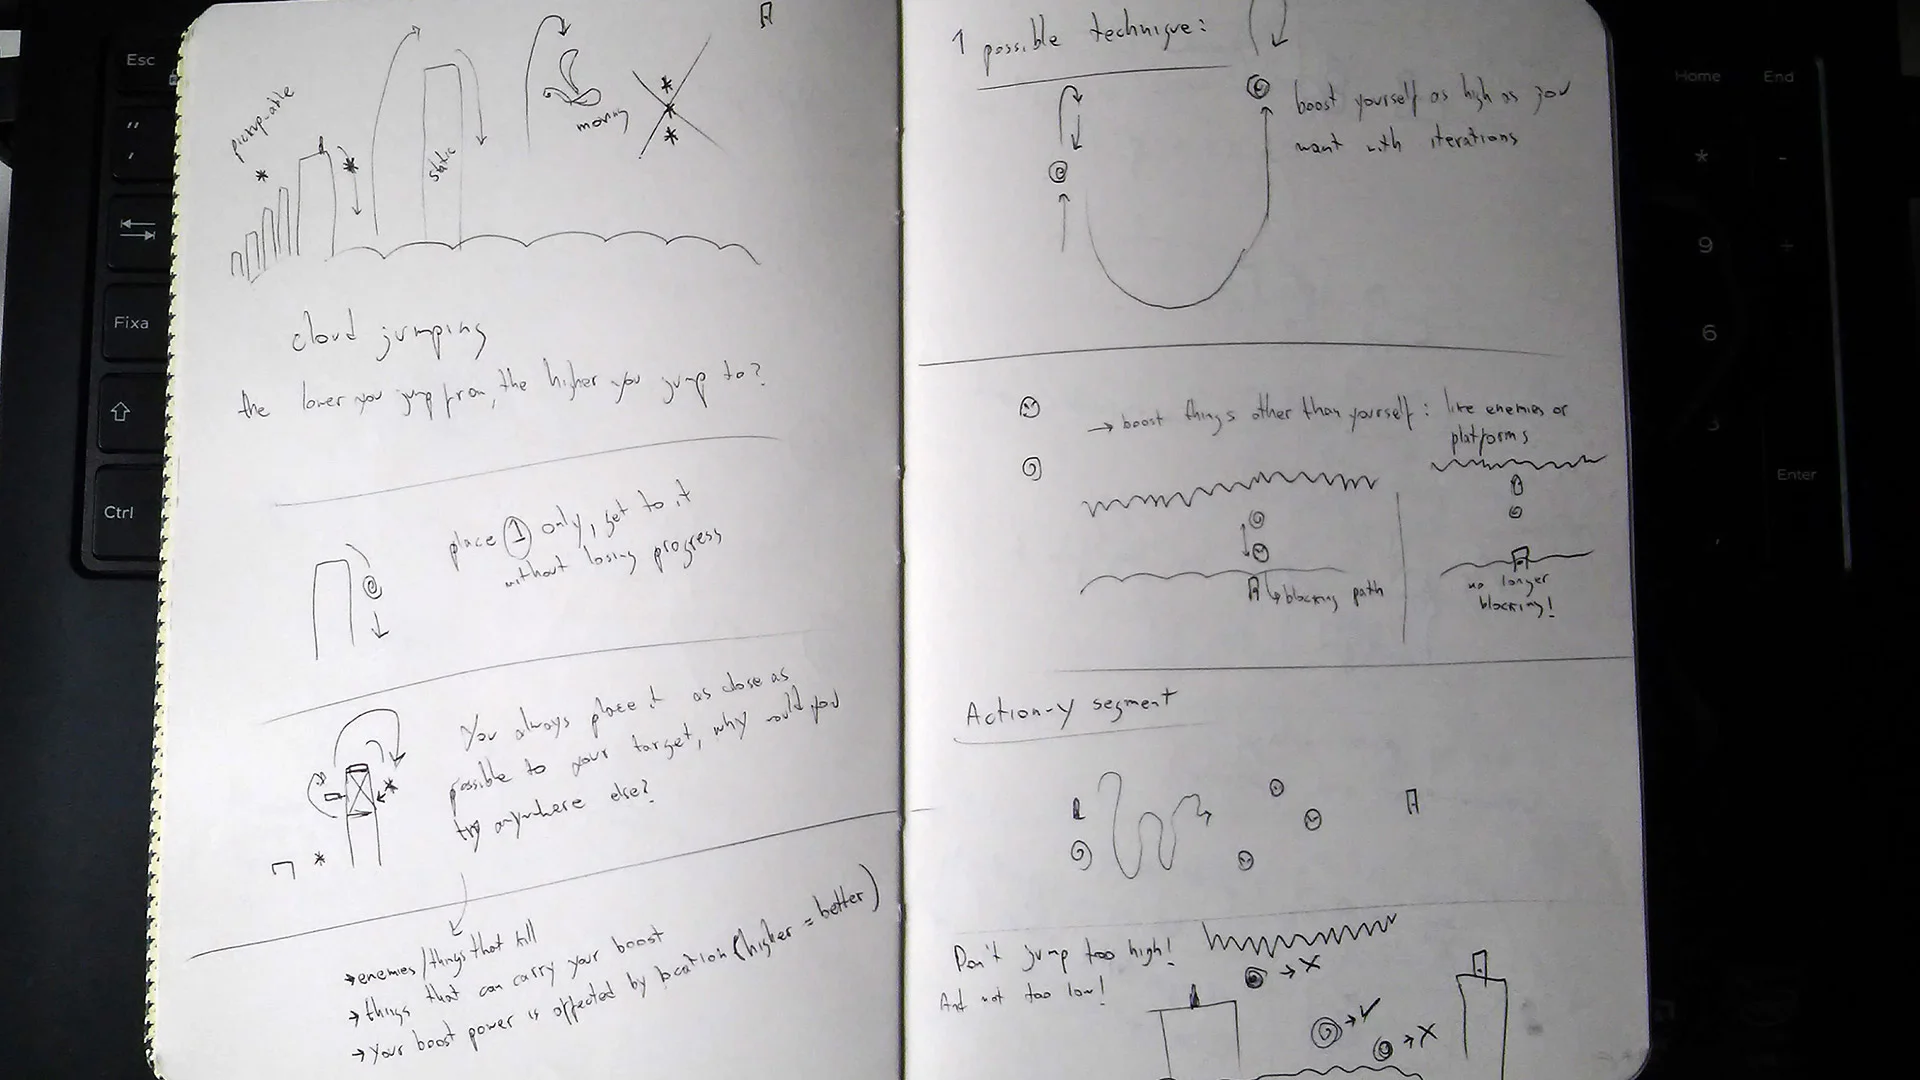 pickup-able
static
moving
cloud jumping
the lower you jump from, the higher you jump to?
place 1 only, get to it
without losing progress
You always place it as close as
possible to your target, why would you
try anywhere else?
→ enemies/things that kill
→ things that can carry your boost
→ your boost power is affected by location (higher = better)
1 possible technique:
boost yourself as high as you
want with iterations
→ boost things other than yourself: like enemies or
platforms
blocking path
no longer
blocking!
Action-y segment
Don't jump too high!
And not too low!
Esc
Fixa
Ctrl
Home End
* -
9 +
6
3
Enter